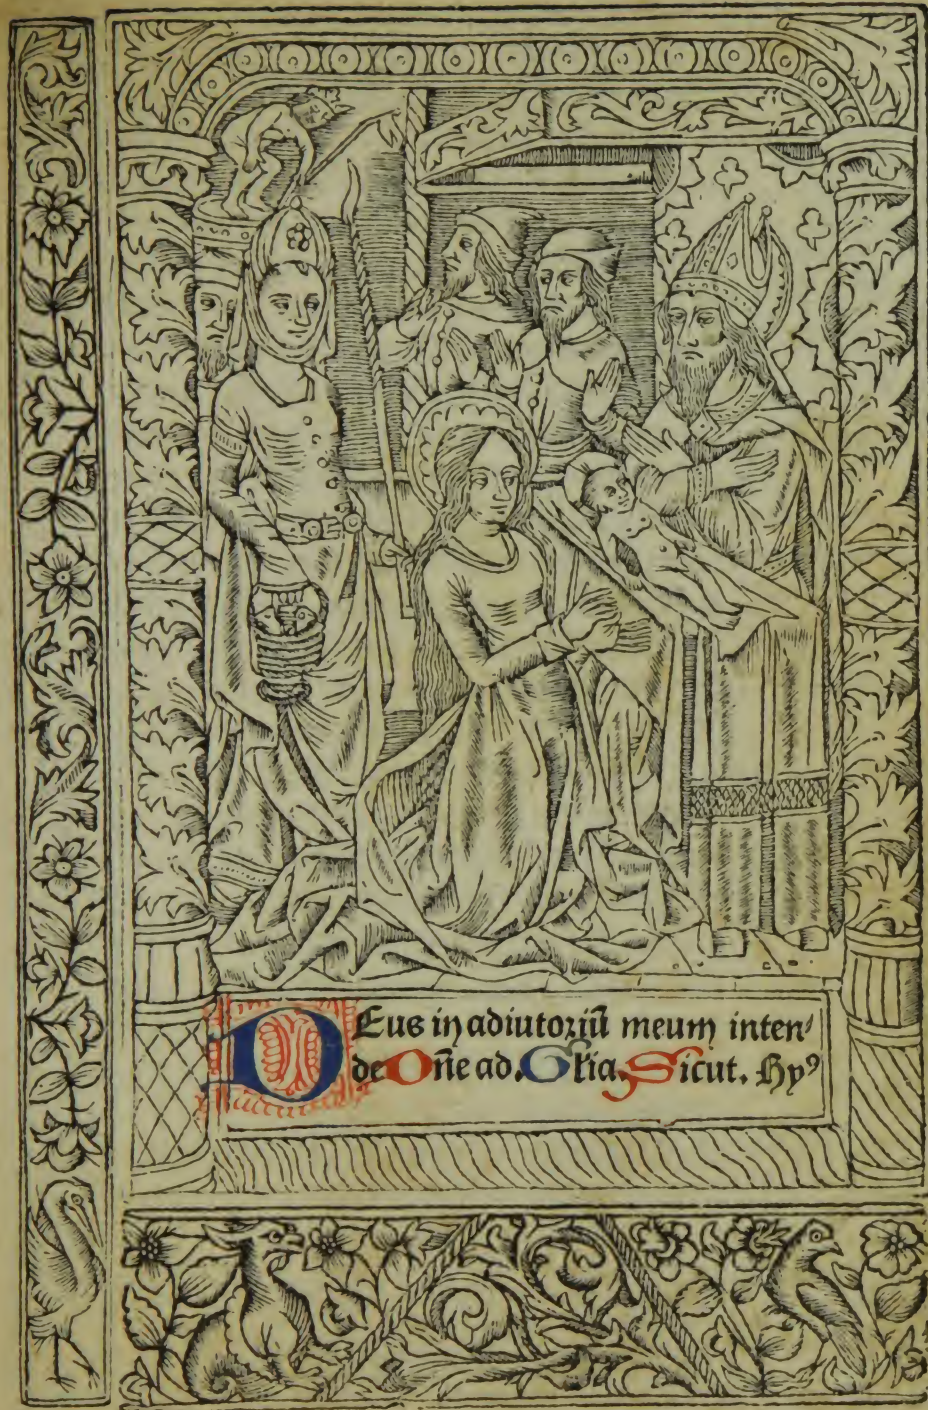 DEus in adiutoriū meum inten⸗
de Dn̄e ad. Glia. Sicut. Hyꝰ